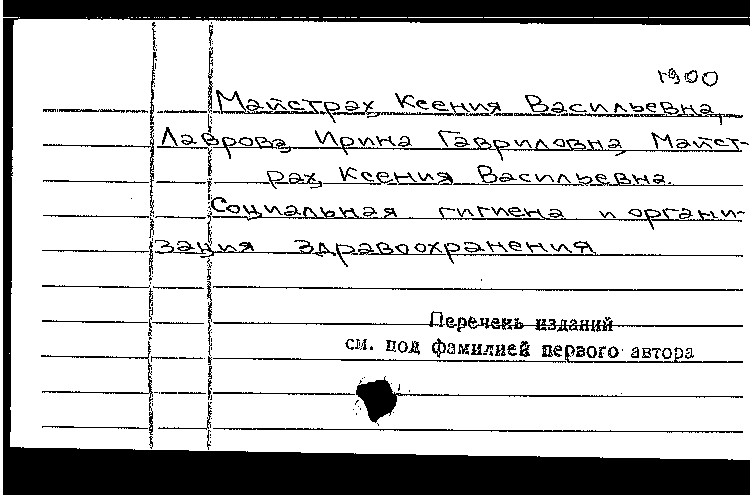 1900
Майстрах, Ксения Васильевна,
Лаврова, Ирина Гавриловна, Майст-
рах, Ксения Васильевна.
Социальная гигиена и органи-
зация здравоохранения
Перечень изданий
см. под фамилией первого автора